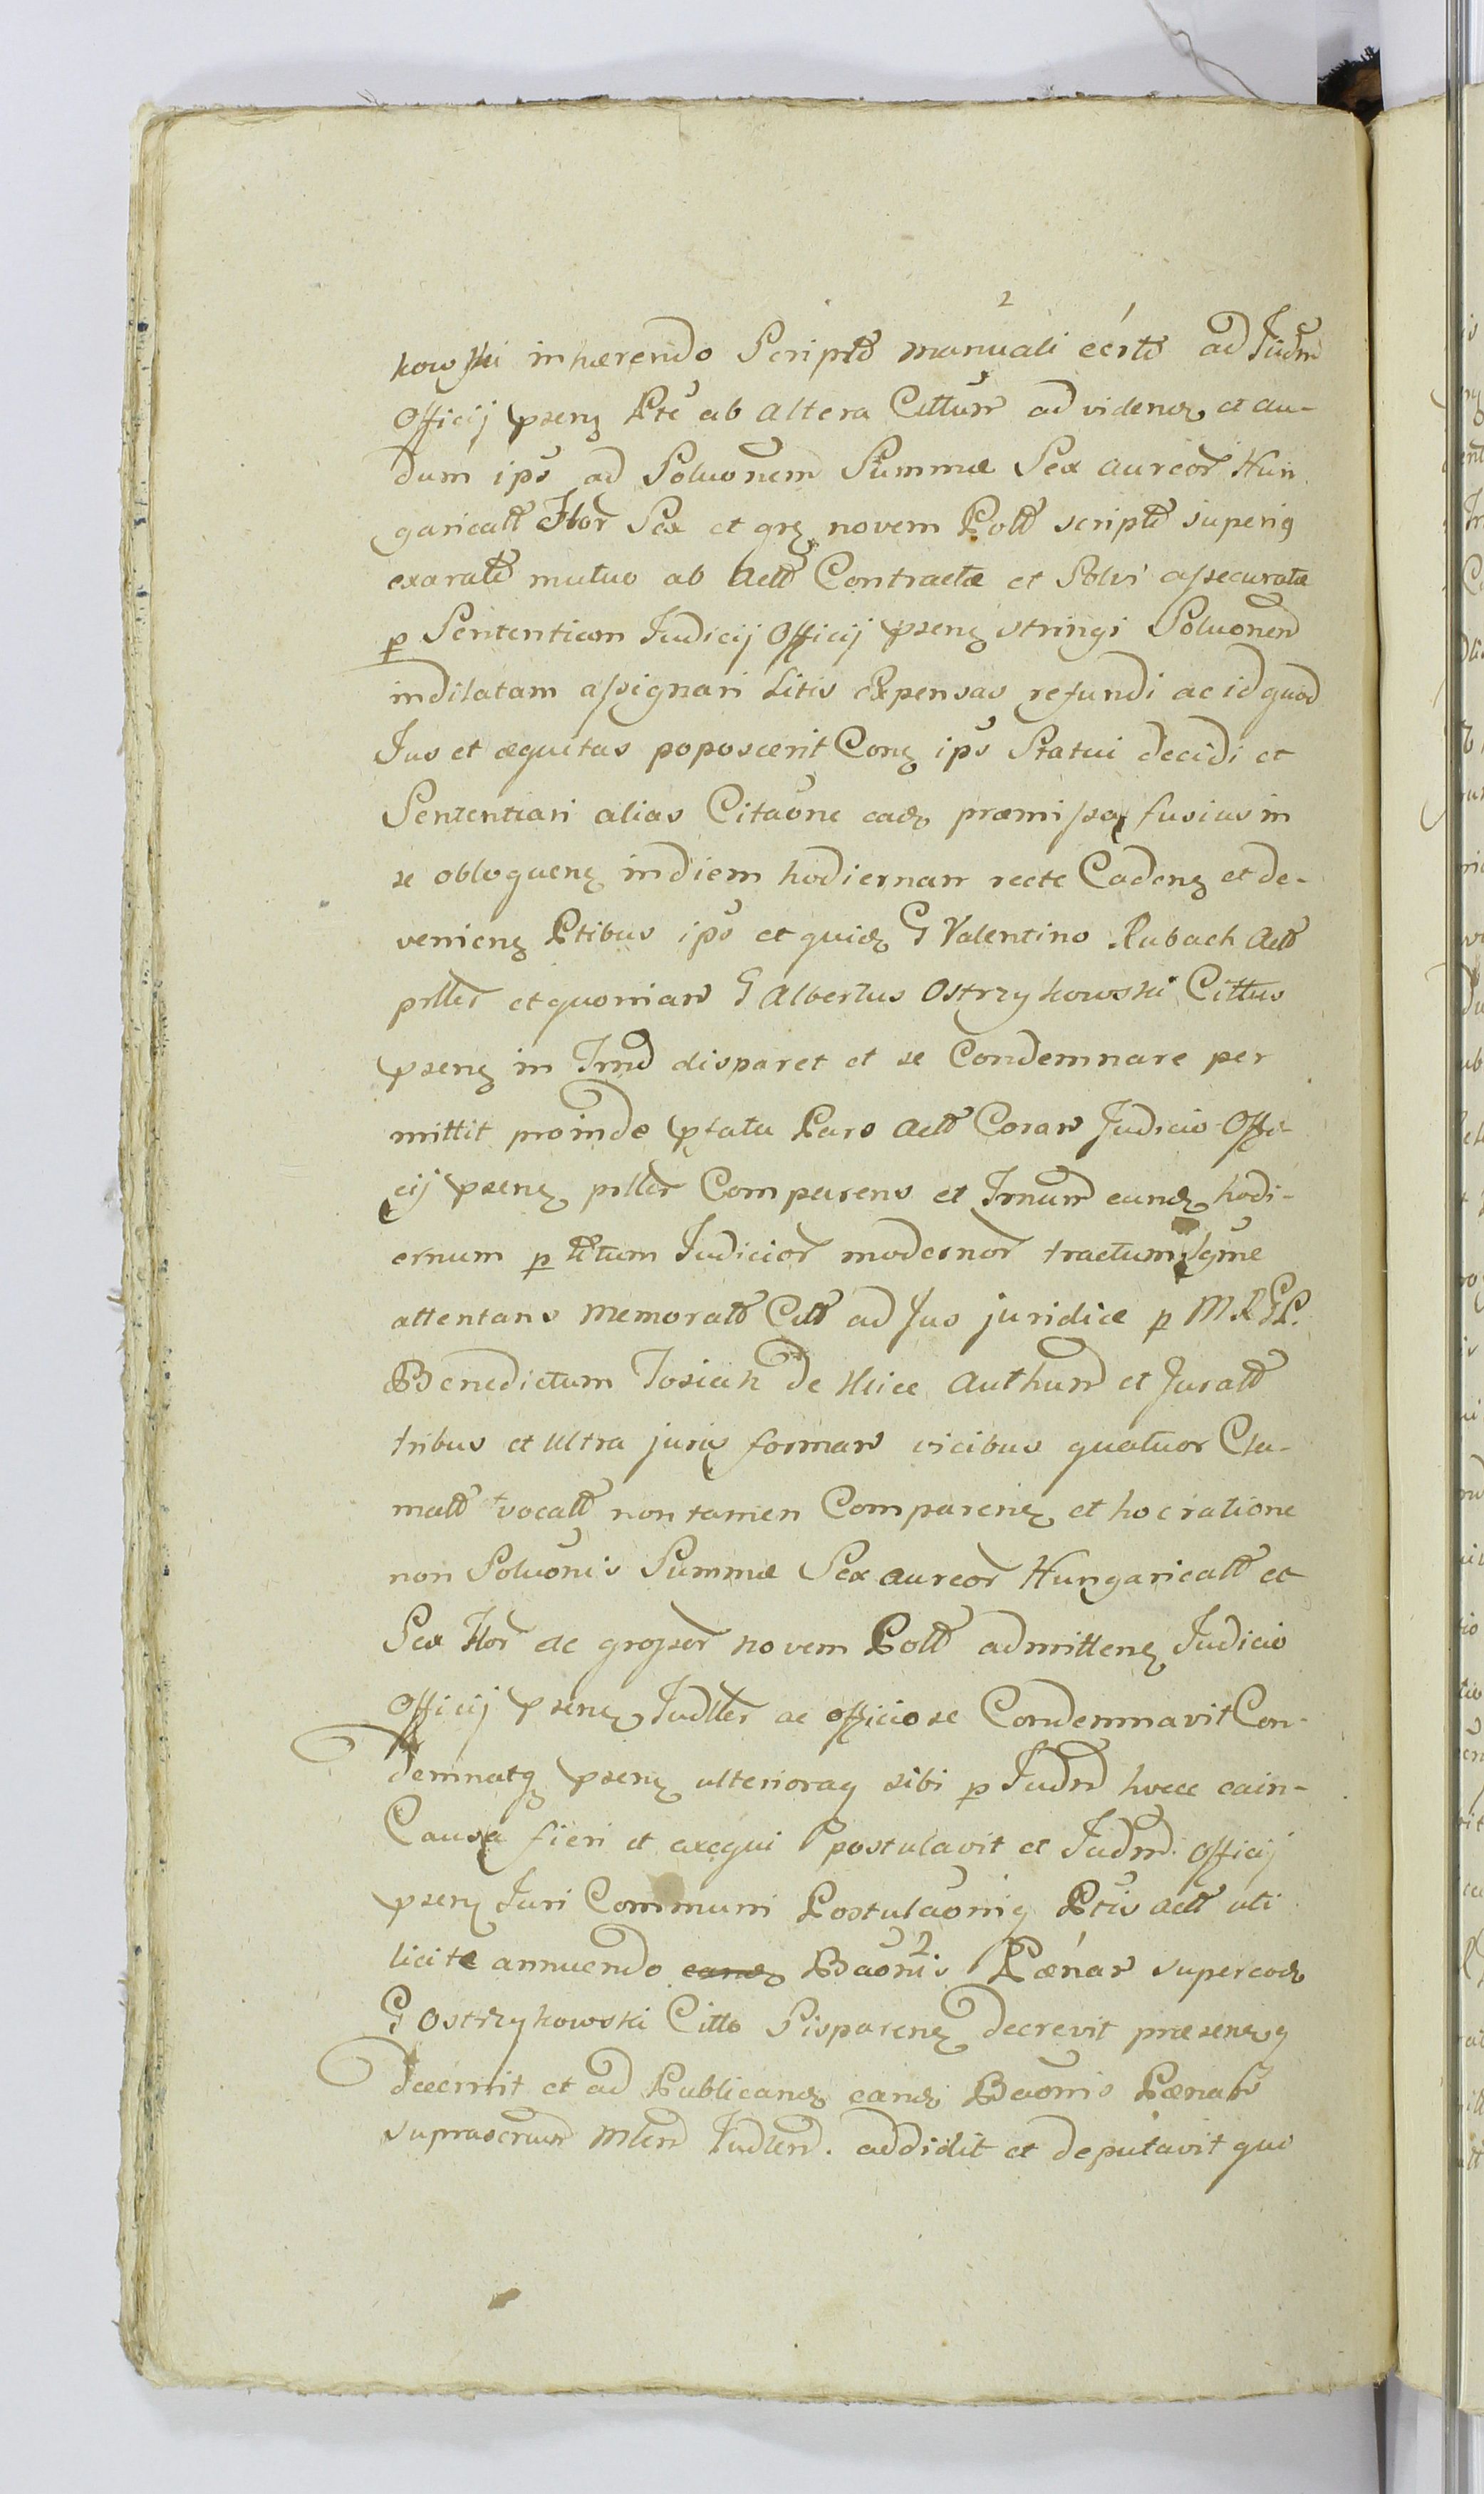 kowski inhærendo Scripto manuali ecito ad Judm
Officij psenz Pte ab altera Cittum ad videnz et au-
dum ips ad Soluonem Summæ Sex aureor Hun
garicall Flor Sex et grz novem Poll scripto superiq
exarato mutuo ab Acto Contractæ et Solvi assecuratæ
p Sententiam Judicij Officij psenz stringi Soluonem
indilatam assignari Litis Expensas refundi ac id quod
Jus et æquitas poposcerit Conz ips Statui decidi et
Sententiari alias Citaone eadz præmissa fusius in
se obloquenz in diem hodiernam recte Cadenz et de-
venienz Ptibus ips et quidz G Valentino Rubach Acto
prlter et quoniam G Albertus Ostrzykowski Cittus
psenz in Tmo disparet et se Condemnare per
mittit proinde pfata Pars Acto Coram Judicio Offi-
cij psenz prlter Comparens et Tmum eundz hodi-
ernum p totum Judicior modernor tractum
attentans memorato Citto ad Jus juridice p M. R. G. P.
Benedictum Tosiek de Authum et Jurato
tribus et Ultra juris formam vicibus quatuor Cla-
mato vocato non tamen Comparenz et hoc ratione
non Soluonis Summæ Sex aureor Hungaricall et
Sex Flor ac grosser novem Poll admittenz Judicio
Officij psenz Judlter ac officiose Condemnavit Con-
demnatq psenz ulterioraq sibi p Judm hocce ea in-
Causa fieri et exequi postulavit et Judm Officij
psenz Juri Communi Postulaoniq Ptis Acto uti
licite annuendo eandz Baonis Pænam super eodz
G Ostrzykowski Citto Disparenz decrevit præsenzq
decernit et ad Publicandz eandz Baonis Pænam
suprascrium Mlem Judlem. addidit et deputavit qui